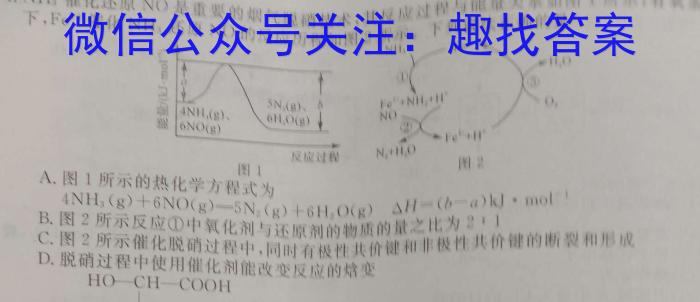 催化还原NO是重要的烟气
微信公众号关注：趣找答案
下,F
能量/(kJ·mol
a
b
4NH₃(g)、
6NO(g)
5N₂(g)、
6H₂O(g)
反应过程
图1
①
Fe²⁺+NH₂+H⁺
NO
②
N₂+H₂O
Fe²⁺+H⁺
③
H₂O
O₂
图2
A.图1所示的热化学方程式为
4NH₃(g)+6NO(g)═5N₂(g)+6H₂O(g) ΔH=(b-a)kJ·mol⁻¹
B.图2所示反应①中氧化剂与还原剂的物质的量之比为2:1
C.图2所示催化脱硝过程中,同时有极性共价键和非极性共价键的断裂和形成
D.脱硝过程中使用催化剂能改变反应的焓变
HO—CH—COOH